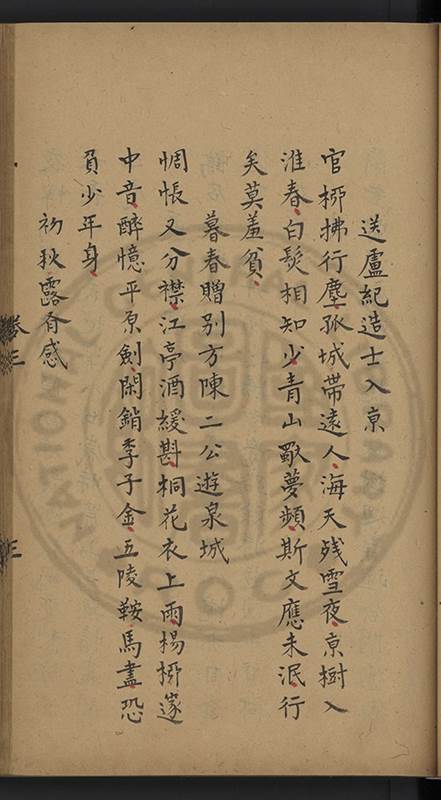 送盧紀造士入京
官桺拂行塵孤城帶遠人海天殘雪夜京樹入
淮春白髮相知少青山歇夢頻斯文應未泯行
矣莫羞貧
暮春贈別方陳二公遊泉城
惆悵又分襟江亭酒緩斟桐花衣上雨楊桺篴
中音醉憶平原劍閑銷季子金五陵鞍馬盡恐
負少年身
初秋露脊感
卷三
三